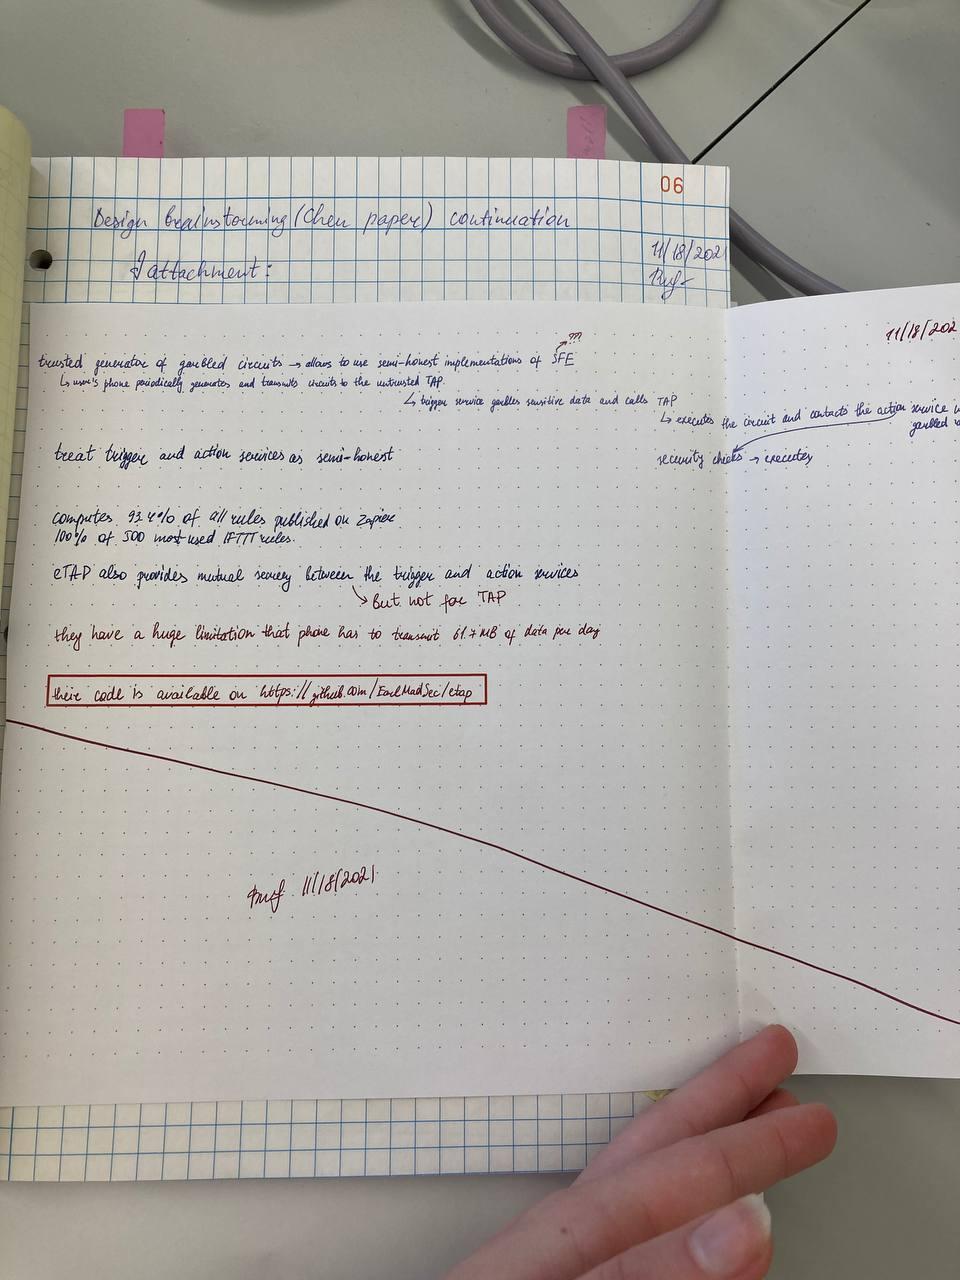 06
Design brainstorming (Chen paper) continuation
11/18/2021
1 attachment:
11/18/202
???
trusted generator of garbled circuits → allows to use semi-honest implementations of SFE
↳ user's phone periodically generates and transmits circuits to the untrusted TAP
↳ trigger service garbles sensitive data and calls TAP
↳ executes the circuit and contacts the action service
garbled
treat trigger and action services as semi-honest
security checks → executes
computes 93.4% of all rules published on Zapier
100% of 500 most used IFTTT rules.
eTAP also provides mutual secrecy between the trigger and action services
↳ But not for TAP
they have a huge limitation that phone has to transmit 61.7 MB of data per day
their code is available on https://github.com/EarlMadSec/etap
11/18/2021